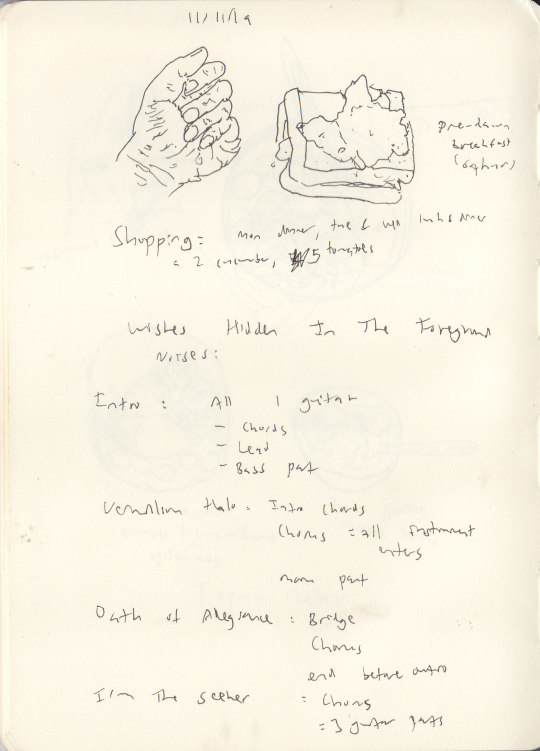 11/11/19
pre-dawn
breakfast
(                )
Shopping = mon dinner, tue & wed lunch & dinner
= 2 cucumber, 5 tomatoes
Wishes Hidden In The Foreground
Noises:
Intro : All 1 guitar
- Chords
- Lead
- Bass part
Vermilion Halo : Intro Chords
Chorus = all instrument
enters
main part
Oath of Allegiance : Bridge
Chorus
end before outro
I'm The Seeker = Chorus
= 3 guitar parts